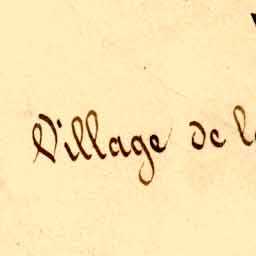 Village de l